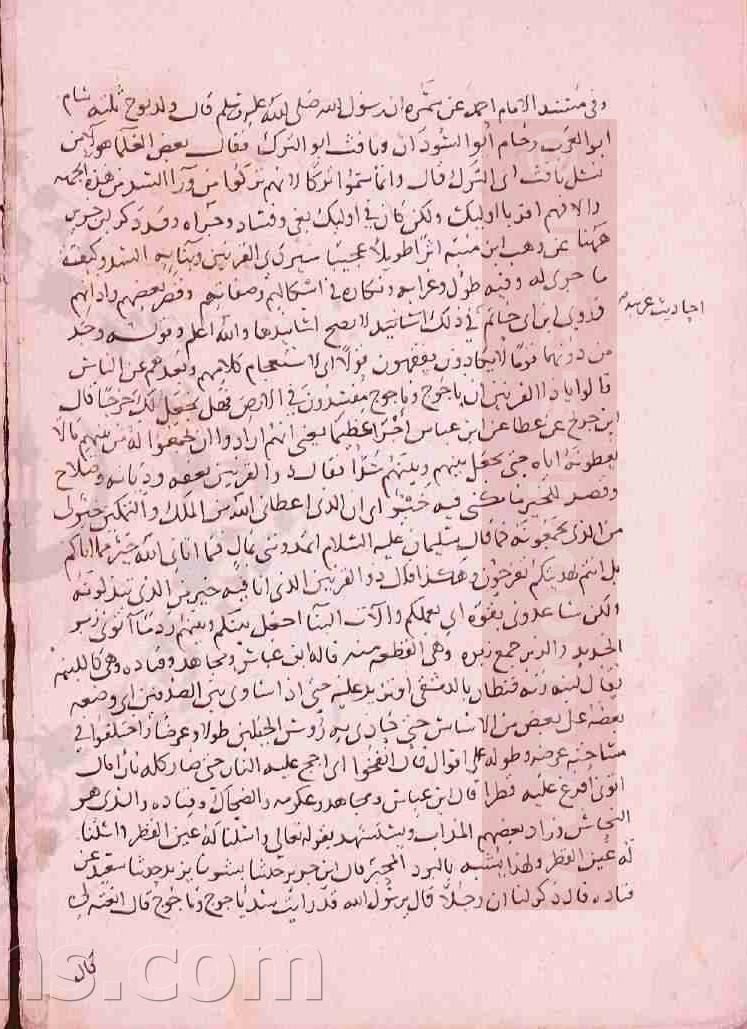 وفي مسند الامام احمد عن سمره ان رسول الله صلى الله عليه وسلم قال ولد نوح ثلثه سام
ابو العرب وحام ابو السودان ويافث ابو الترك فقال بعض العلما هولاء من
نسل يافث ابي الترك قال وانما سموا تركا لانهم تركوا من ورآ السد من هذه الجهه
والا فهم اقربا اوليك ولكن كان في اوليك بغي وفساد وجراه وقد ذكر ابن جرير
ههنا عن وهب ابن منبه اثرا طويلا عجيبا في سير ذي القرنين وبنايه السد وكيفيه
ما جرى له وفيه طول وغرابه ونكاره في اشكالهم وصفاتهم وقصر بعضهم واذانهم
احاديث غريبه
وروى ابن ابي حاتم في ذلك اسانيد لا تصح اسانيدها والله اعلم وقوله وجد
من دونهما قوما لا يكادون يفقهون قولا اي لاستعجام كلامهم وبعدهم عن الناس
قالوا ياذا القرنين ان ياجوج وماجوج مفسدون في الارض فهل نجعل لك خرجا قال
ابن جريج عن عطا عن ابن عباس اجرا عظيما يعني انهم ارادوا ان يجمعوا له من بينهم مالا
يعطونه اياه حتى يجعل بينهم وبينهم سدا فقال ذو القرنين بعفه وديانه وصلاح
وقصد للخير ما مكني فيه خير اي ان الذي اعطاني الله من الملك والتمكين خير لي
من الذي تجمعونه كما قال سليمان عليه السلام اتمدونني بمال فما اتاني الله خير مما اتاكم
بل انتم بهديتكم تفرحون وهكذا قال ذو القرنين الذي انا فيه خير من الذي تبذلونه
ولكن ساعدوني بقوه اي بعملكم والات البنا اجعل بينكم وبينهم ردما آتوني زبر
الحديد والزبر جمع زبره وهي القطعه منه قاله ابن عباس ومجاهد وقتاده وهي كاللبنه
يقال لبنه زنه قنطار بالدمشقي او تزيد عليه حتى اذا ساوى بين الصدفين اي وضع
بعضه على بعض من الاساس حتى حاذى به رؤس الجبلين طولا وعرضا واختلفوا في
مساحه عرضه وطوله على اقوال قال انفخوا اي اجج عليه النار حتى صار كله نارا قال
اتوني افرغ عليه قطرا قال ابن عباس ومجاهد وعكرمه والضحاك وقتاده والذي هو
النحاس زاد بعضهم المذاب ويستشهد بقوله تعالى واسلنا له عين القطر واسلنا
له عين القطر ولهذا يشبه بالبرد المحبر قال ابن جرير حدثنا بشر ثنا يزيد حدثنا سعيد عن
قتاده قال ذكر لنا ان رجلا قال يرسول الله قد رايت سد ياجوج وماجوج قال انعته لي
قال
ns.com